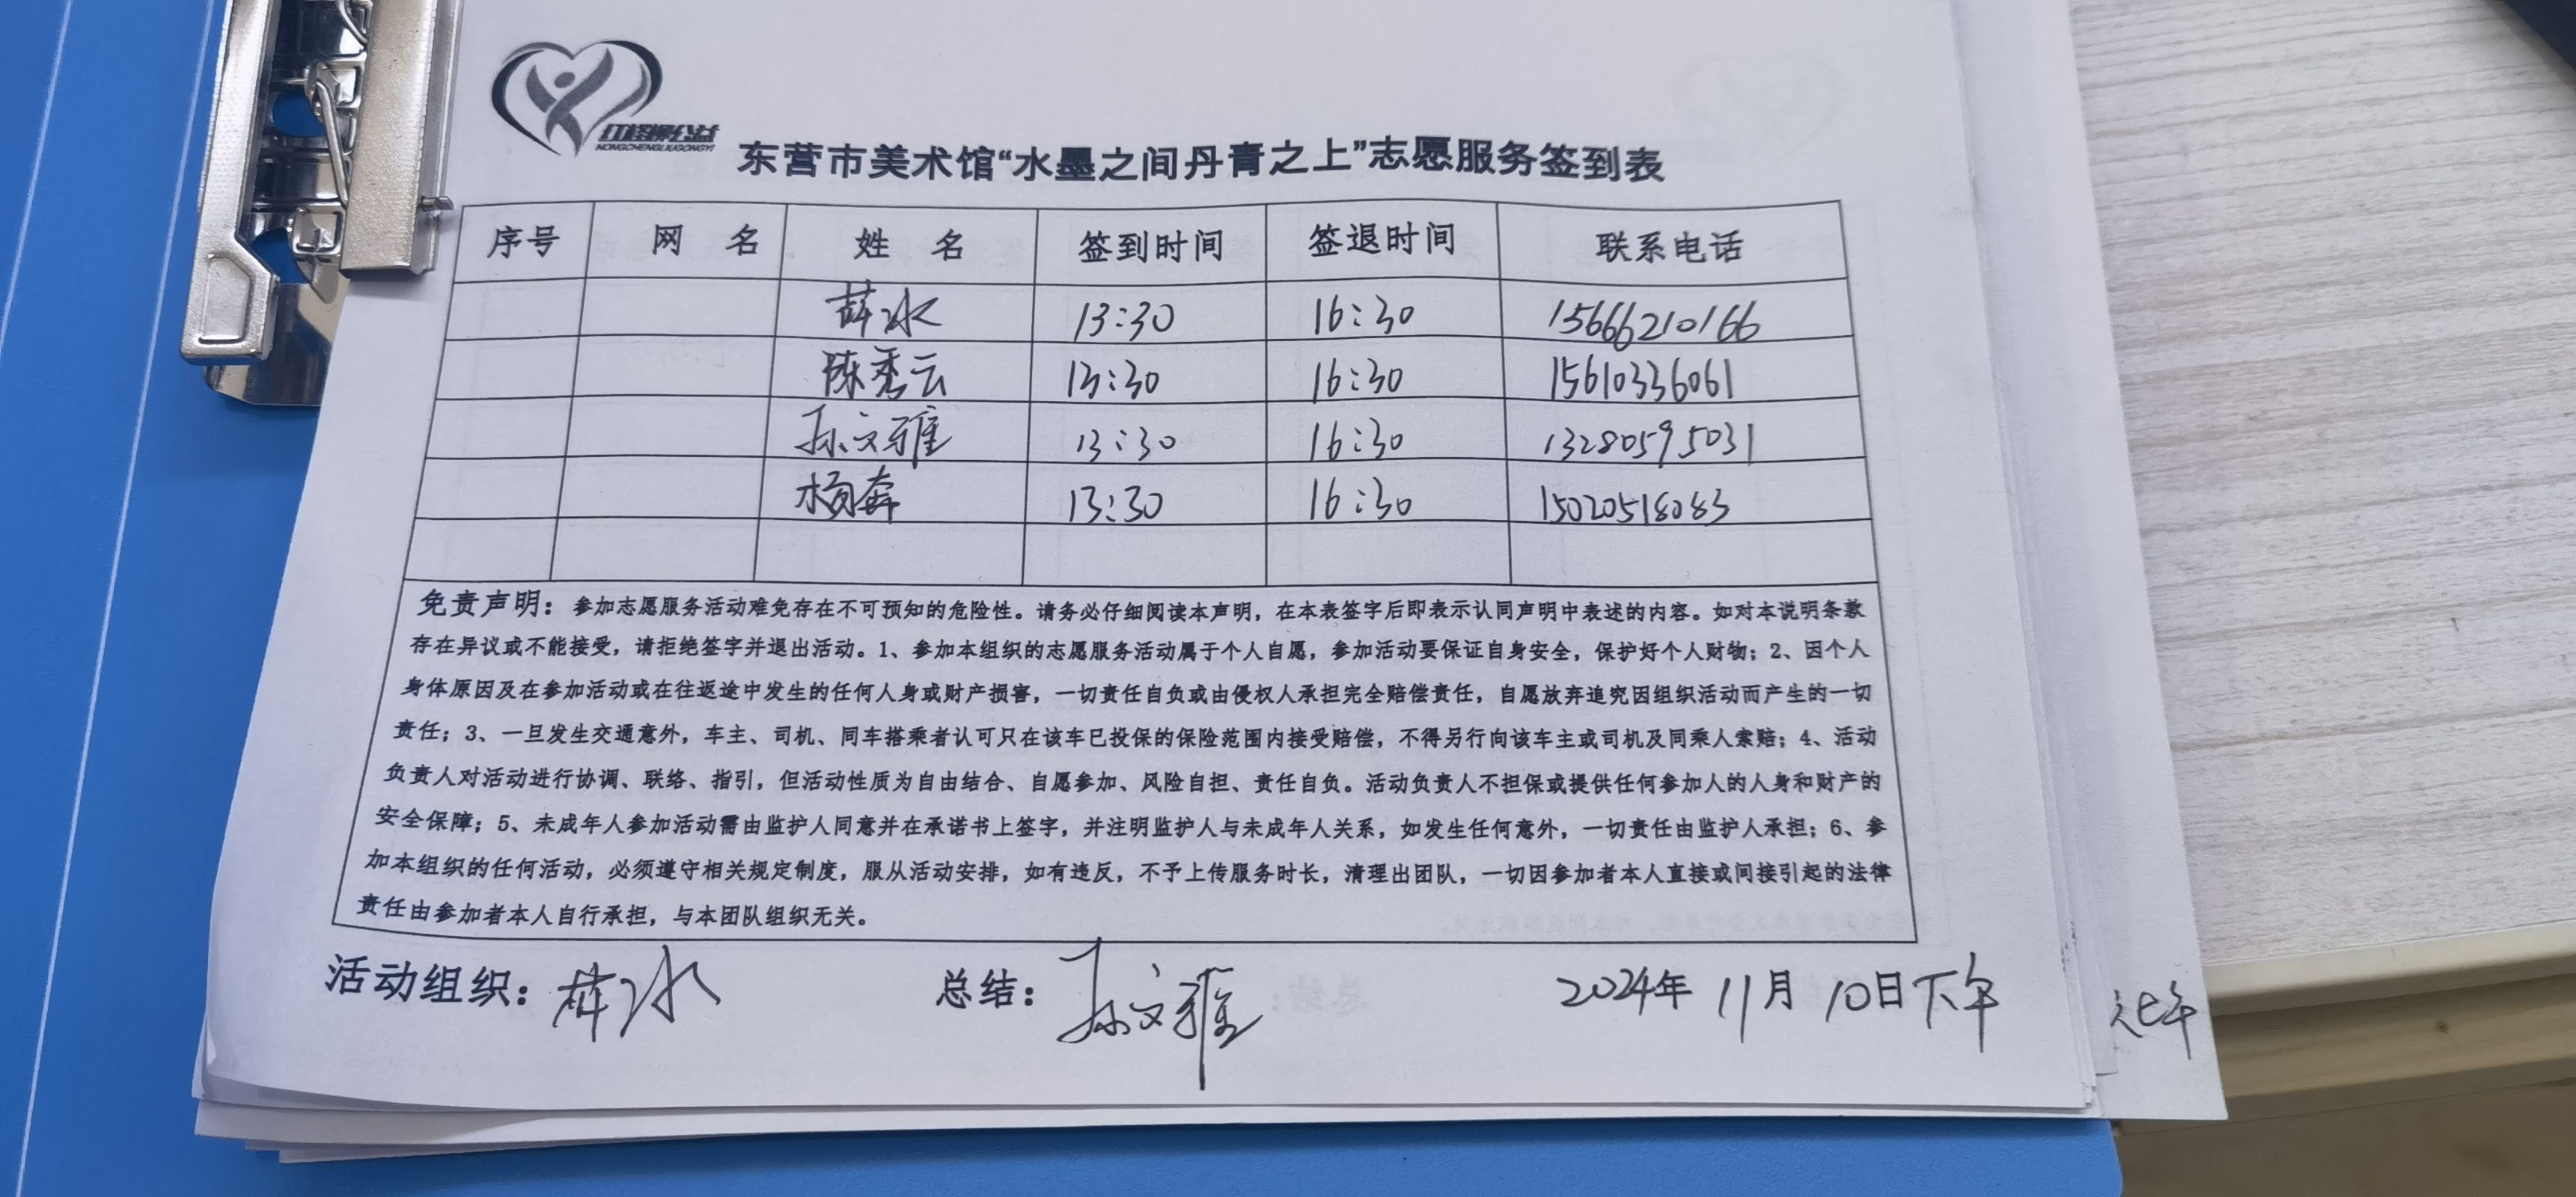 红橙柳公益
HONGCHENGLIUGONGYI
东营市美术馆“水墨之间丹青之上”志愿服务签到表
序号 网 名 姓 名 签到时间 签退时间 联系电话
薛冰 13:30 16:30 15666210166
陈秀云 13:30 16:30 15610336061
孙文雅 13:30 16:30 13280595031
杨奔 13:30 16:30 15020518083
免责声明：参加志愿服务活动难免存在不可预知的危险性。请务必仔细阅读本声明，在本表签字后即表示认同声明中表述的内容。如对本说明条款
存在异议或不能接受，请拒绝签字并退出活动。1、参加本组织的志愿服务活动属于个人自愿，参加活动要保证自身安全，保护好个人财物；2、因个人
身体原因及在参加活动或在往返途中发生的任何人身或财产损害，一切责任自负或由侵权人承担完全赔偿责任，自愿放弃追究因组织活动而产生的一切
责任；3、一旦发生交通意外，车主、司机、同车搭乘者认可只在该车已投保的保险范围内接受赔偿，不得另行向该车主或司机及同乘人索赔；4、活动
负责人对活动进行协调、联络、指引，但活动性质为自由结合、自愿参加、风险自担、责任自负。活动负责人不担保或提供任何参加人的人身和财产的
安全保障；5、未成年人参加活动需由监护人同意并在承诺书上签字，并注明监护人与未成年人关系，如发生任何意外，一切责任由监护人承担；6、参
加本组织的任何活动，必须遵守相关规定制度，服从活动安排，如有违反，不予上传服务时长，清理出团队，一切因参加者本人直接或间接引起的法律
责任由参加者本人自行承担，与本团队组织无关。
活动组织：薛冰 总结：孙文雅 2024年 11月 10日下午